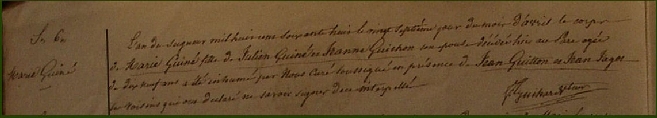 S. 6e
Marie Guiné
L'an du seigneur mil huit cent soixante huit le vingt septième jour du mois d'avril le corps
de Marie Guiné fille de Julien Guiné et Jeanne Guichon son épouse décédée hier au agée
de dix neuf ans a été inhumé par Nous Curé soussigné en présence de Jean Guitton et Jean
ses voisins qui ont déclaré ne savoir signer de ce interpellé